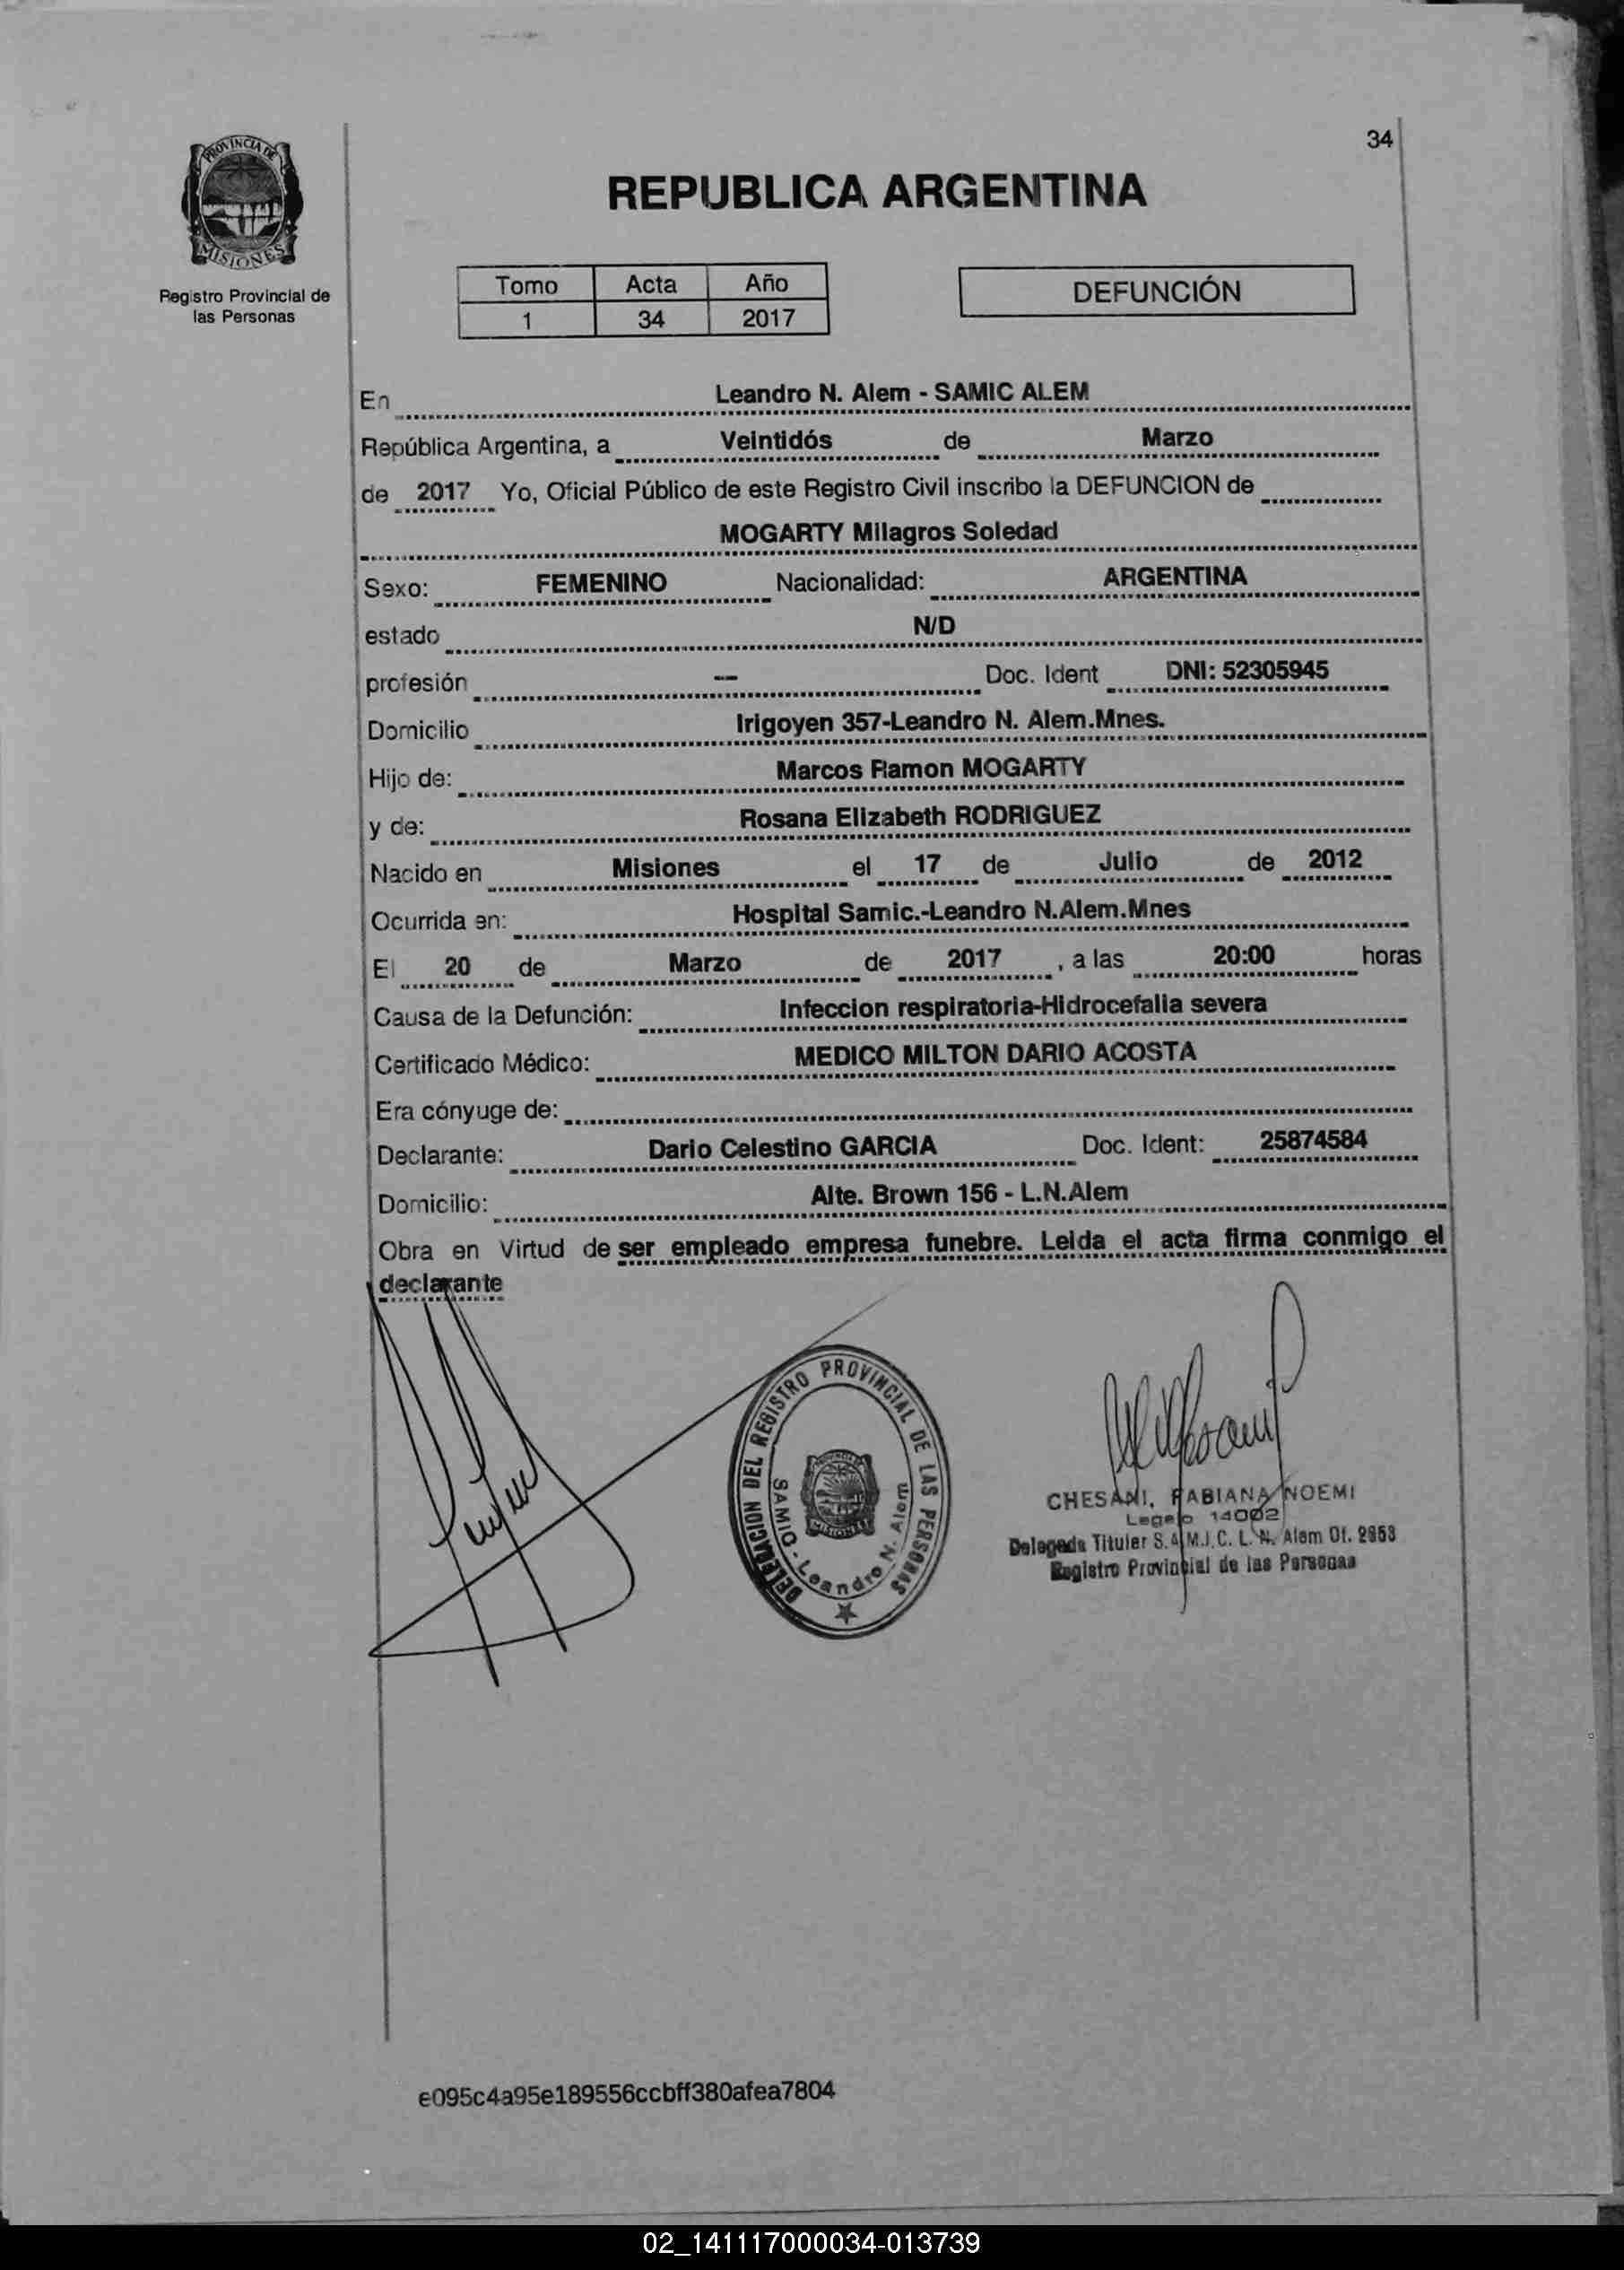 34
PROVINCIA DE
MISIONES
Registro Provincial de
las Personas
REPUBLICA ARGENTINA
Tomo Acta Año
1 34 2017
DEFUNCIÓN
En Leandro N. Alem - SAMIC ALEM
República Argentina, a Veintidós de Marzo
de 2017 Yo, Oficial Público de este Registro Civil inscribo la DEFUNCION de
MOGARTY Milagros Soledad
Sexo: FEMENINO Nacionalidad: ARGENTINA
estado N/D
profesión -- Doc. Ident DNI: 52305945
Domicilio Irigoyen 357-Leandro N. Alem.Mnes.
Hijo de: Marcos Ramon MOGARTY
y de: Rosana Elizabeth RODRIGUEZ
Nacido en Misiones el 17 de Julio de 2012
Ocurrida en: Hospital Samic.-Leandro N.Alem.Mnes
El 20 de Marzo de 2017 , a las 20:00 horas
Causa de la Defunción: Infeccion respiratoria-Hidrocefalia severa
Certificado Médico: MEDICO MILTON DARIO ACOSTA
Era cónyuge de:
Declarante: Dario Celestino GARCIA Doc. Ident: 25874584
Domicilio: Alte. Brown 156 - L.N.Alem
Obra en Virtud de ser empleado empresa funebre. Leida el acta firma conmigo el
declarante
DELEGACION DEL REGISTRO PROVINCIAL DE LAS PERSONAS
SAMIC - Leandro N. Alem
MISIONES
CHESANI, FABIANA NOEMI
Legajo 14002
Delegada Titular S.A.M.I.C. L. N. Alem Of. 2953
Registro Provincial de las Personas
e095c4a95e189556ccbff380afea7804
02_141117000034-013739